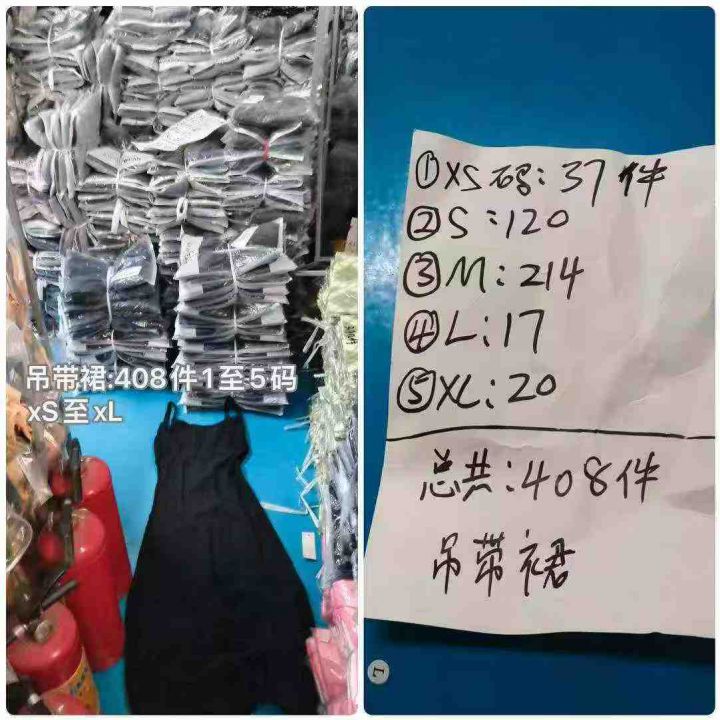 吊带裙:408件1至5码
xS至xL
①XS码:37件
②S:120
③M:214
④L:17
⑤XL:20
总共:408件
吊带裙
L